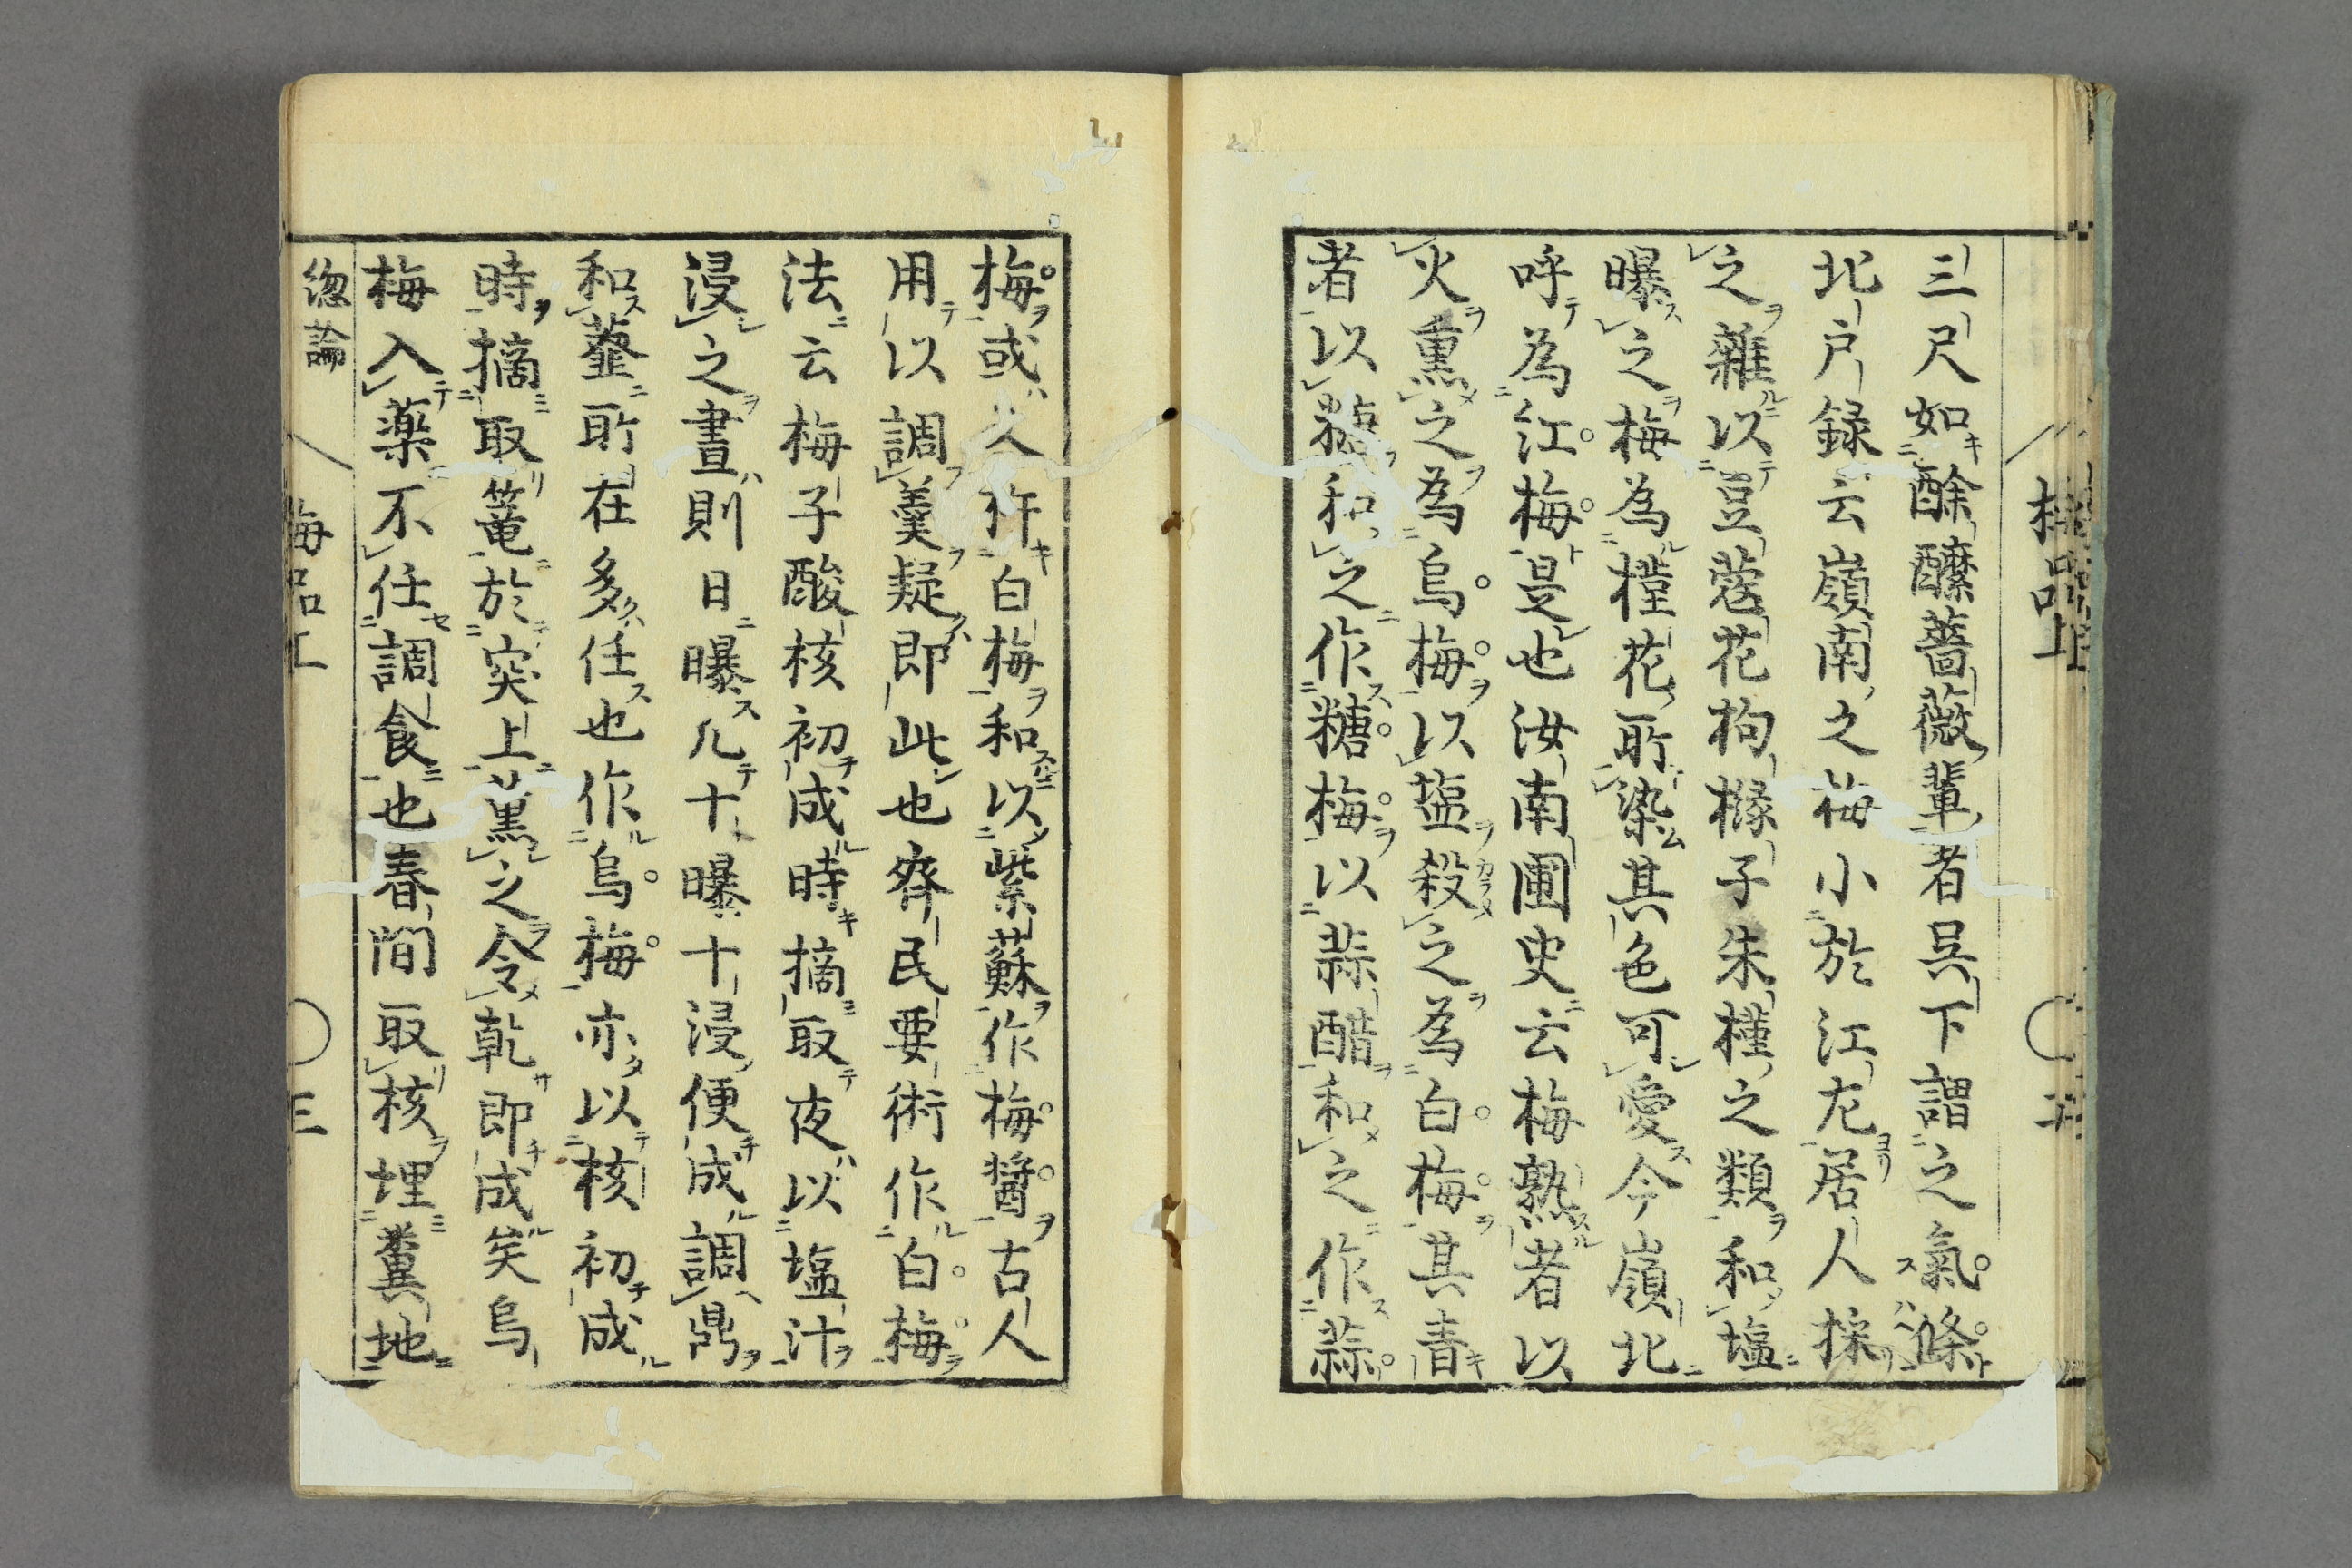 三尺如酴醾薔薇輩者呉下謂之氣條
北戸録云嶺南之梅小於江左居人採
之雜以豆蔻花枸櫞子朱槿之類和塩
曝之梅為槿花所染其色可愛今嶺北
呼為江梅是也汝南圃史云梅熟者以
火熏之為烏梅以塩殺之為白梅其青
者以糖和之作糖梅以蒜醋和之作蒜
梅或又作白梅和以紫蘇作梅醬古人
用以調羹疑即此也齊民要術作白梅
法云梅子酸核初成時摘取夜以塩汁
浸之晝則日曝凡十曝十浸便成調鼎
和虀所在多任也作烏梅亦以核初成
時摘取篭於突上薫之令乾即成矣烏
梅入藥不任調食也春間取核埋糞地
総論